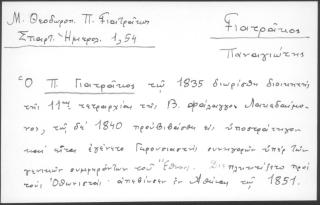 Μ. Θεοδωροπ. Π. Γιατράκος
Σπαρτ. Ἡμερολ. 1,54
Γιατράκος
Παναγιώτης
Ὁ Π Γιατράκος τῷ 1835 διωρίσθη διοικητής
τῆς 11ης τετραρχίας τῆς Β. φάλαγγος Λακεδαίμο-
νος, τῷ δὲ 1840 προὐβιβάσθη εἰς ὑποστράτηγον
καὶ εἶτα ἐγένετο Γερουσιαστὴς συνηγορῶν ὑπὲρ τῶν
γενικῶν συμφερόντων τοῦ Ἔθνους. πρὸς
τοὺς Ὀθωνιστάς· ἀπεβίωσεν ἐν Ἀθήναις τῷ 1851.